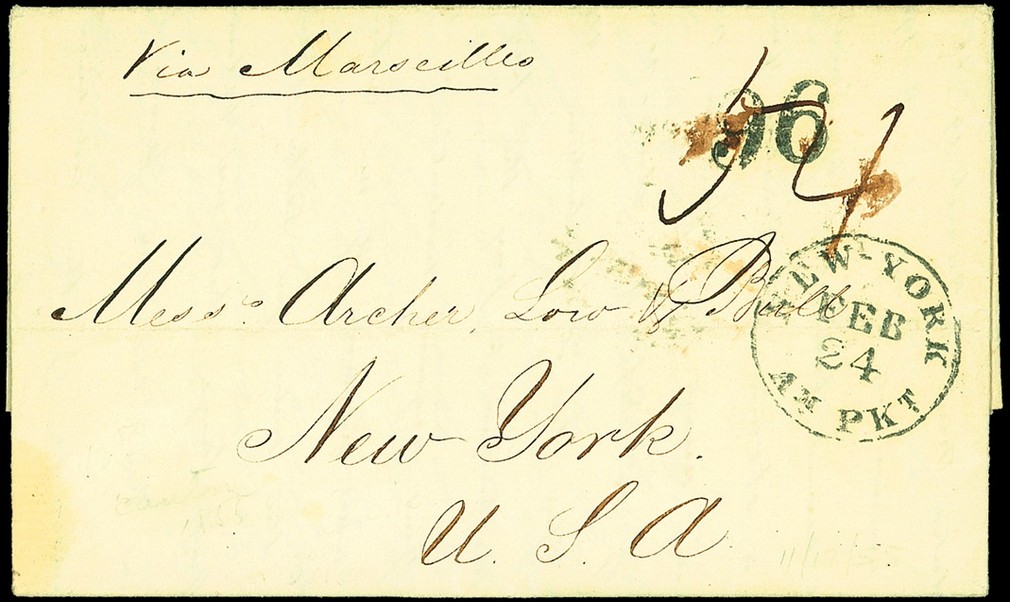 Via Marseilles
96
54
NEW-YORK
FEB
24
AM PKT
Messrs. Archer, Low & Bull
New York.
U. S. A
1855